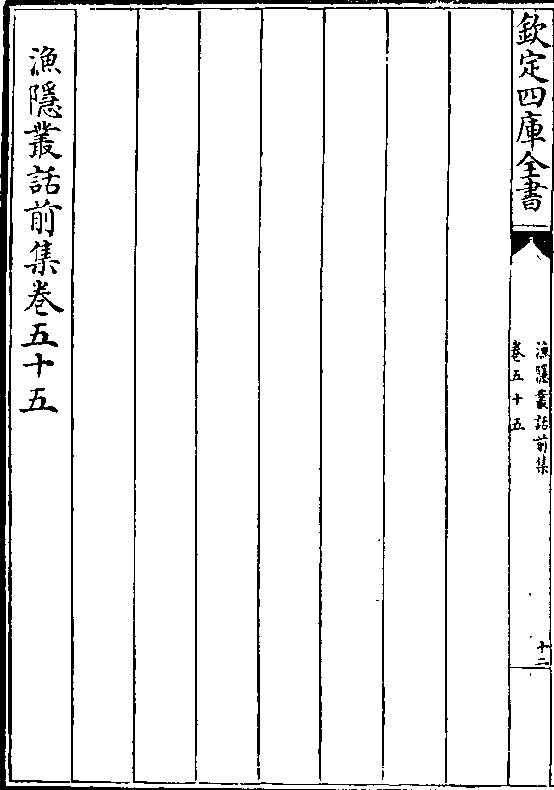 欽定四庫全書
漁隱叢話前集
卷五十五
十二
漁隱叢話前集卷五十五